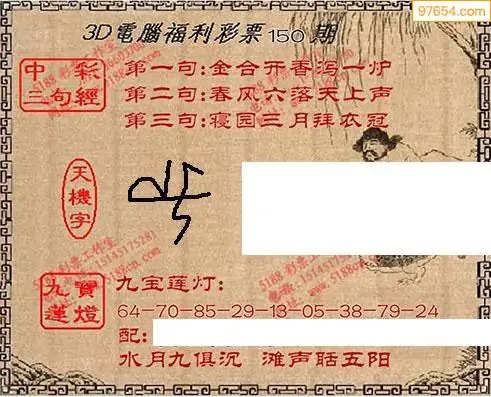 97654.com
3D電腦福利彩票150期
中彩
三句經
第一句:金合开香泻一炉
第二句:春风六落天上声
第三句:寝园三月拜衣冠
天機字
5188 彩票工作室
15145175281
5188cn.com
九寶
蓮燈
九宝莲灯:
64-70-85-29-13-05-38-79-24
配:
水月九俱沉 滩声聒五阳